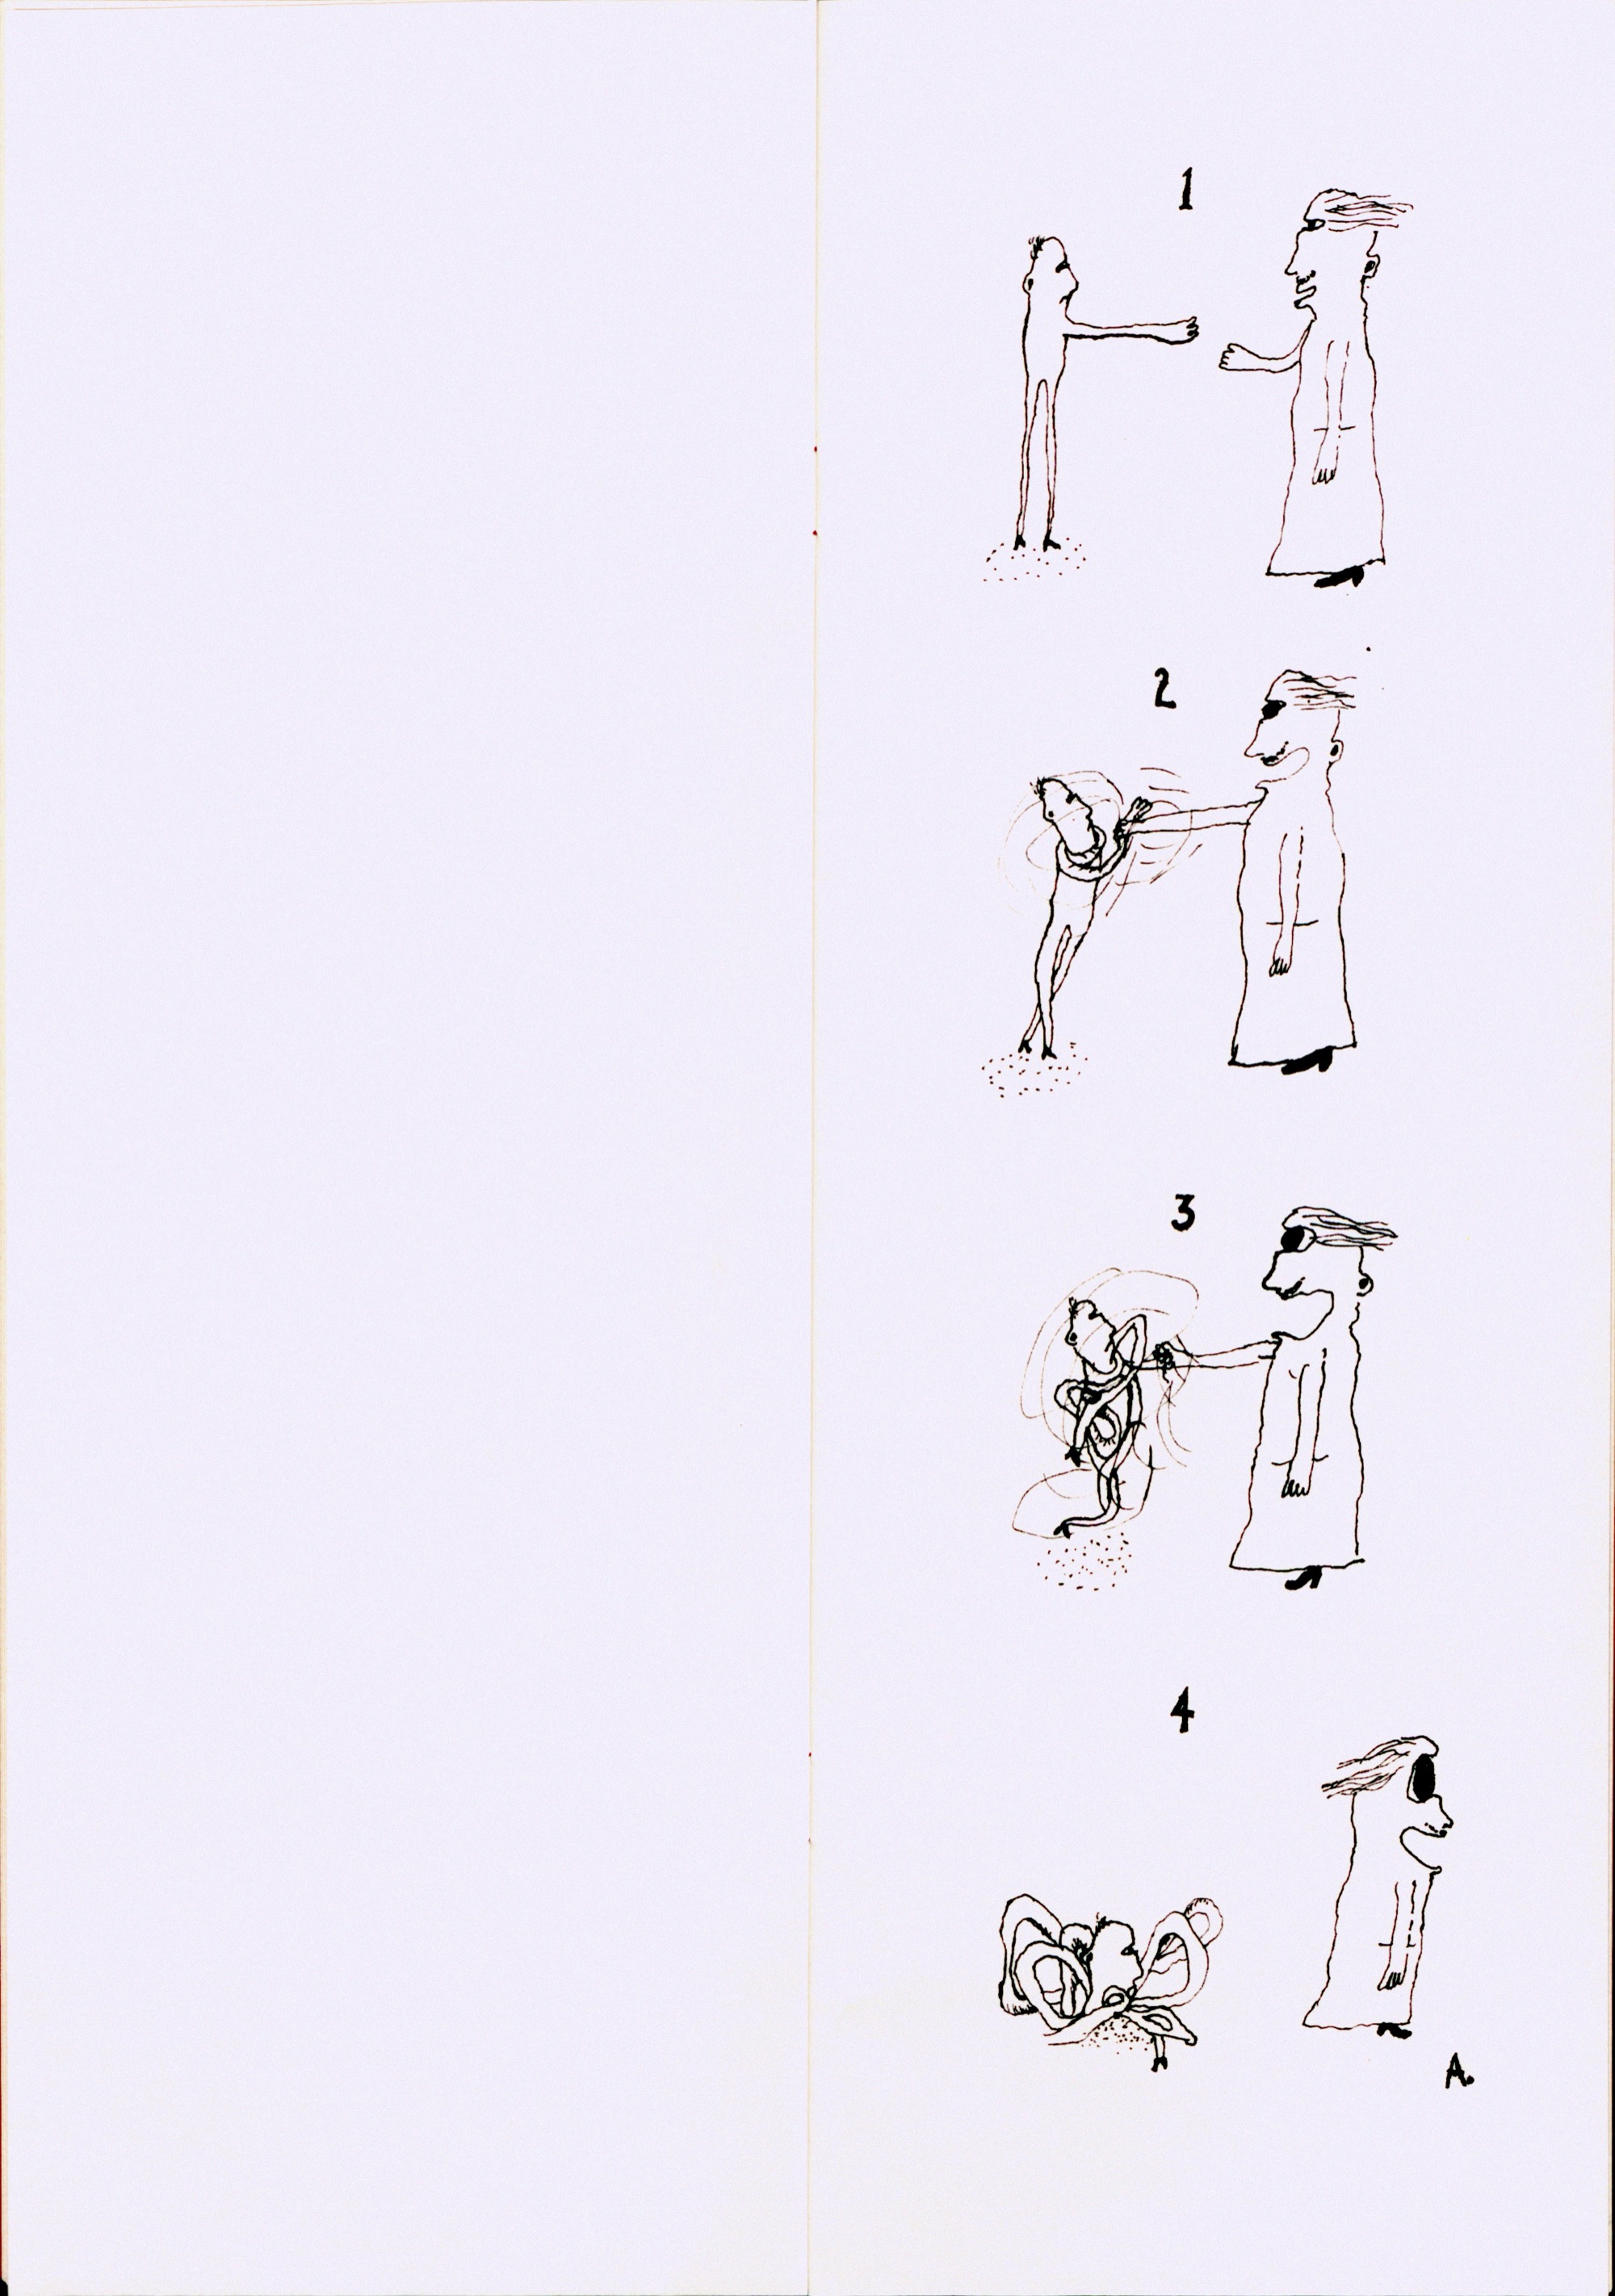 1
2
3
4
A.